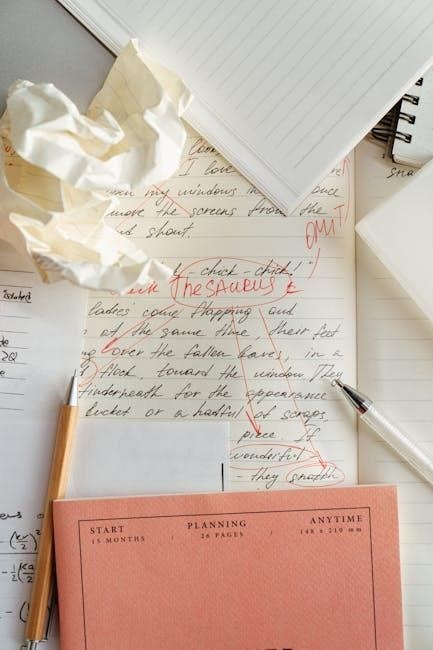 I love
my windows in once
move the screens from the
shout.
OMIT
- chick - chick!
Thesaurus
ladies come flapping and
at the same time, their feet
over the fallen leaves, in a
flock, toward the window. They
underneath for the appearance
bucket or a hatful of scraps,
piece. If
wonderful
- they snatch
isolated
START
15 MONTHS
PLANNING
26 PAGES
ANYTIME
148 x 210 mm